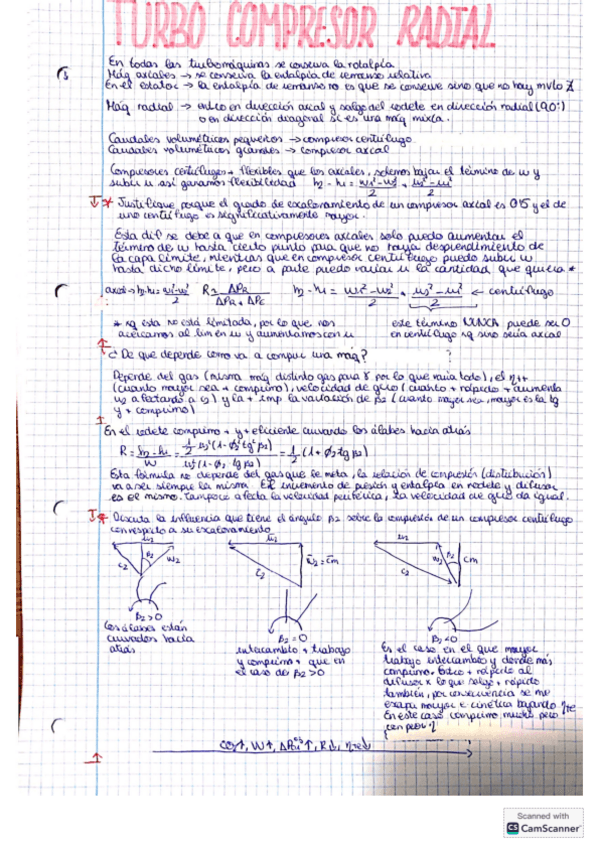 TURBO COMPRESOR RADIAL
En todas las turbomáquinas se conserva la rotalpía
Máq axiales → se conserva la entalpía de remanso relativa
En el estator → la entalpía de remanso no es que se conserve sino que no hay mvto
Máq radial → entro en dirección axial y salgo del rodete en dirección radial (90°)
o en dirección diagonal si es una máq mixta.
Caudales volumétricos pequeños → compresor centrífugo
Caudales volumétricos grandes → compresor axial
Compresores centrífugos + flexibles que los axiales, solemos bajar el término de w y
subir u así ganamos flexibilidad h2 - h1 = w1² - w2² / 2 + u2² - u1² / 2
Justifique porque el grado de escalonamiento de un compresor axial es 0'5 y el de
uno centrífugo es significativamente mayor.
Esta dif se debe a que en compresores axiales solo puedo aumentar el
término de w hasta cierto punto para que no haya desprendimiento de
la capa límite, mientras que en compresor centrífugo puedo subir w
hasta dicho límite, pero a parte puedo variar u la cantidad que quiera *
axial → h2-h1 = w1²-w2² / 2 R = ΔPR / ΔPR + ΔPE h2 - h1 = w1² - w2² / 2 + u2² - u1² / 2 ← centrífugo
* xq ésta no está limitada, por lo que nos
acercamos al lim en w y aumentamos con u
este término NUNCA puede ser 0
en centrífugo xq sino sería axial
¿De que depende como va a compr una máq?
Depende del gas (misma máq distinto gas para γ por lo que varía todo), el ηtt
(cuanto mayor sea + comprimo), velocidad de giro (cuanto + rápido + aumenta
u2 afectando a c2) y la + imp la variación de β2 (cuanto mayor sea, mayor es la tg
y + comprimo)
En el rodete comprimo + y + eficiente curvando los álabes hacia atrás
R = h2 - h1 / W = ½ u2² (1 - φ2² tg² β2) / u2² (1 - φ2 tg β2) = ½ (1 + φ2 tg β2)
Esta fórmula no depende del gas que le meta, la relación de compresión (distribución)
va a ser siempre la misma. El incremento de presión y entalpía en rodete y difusor
es el mismo. Tampoco afecta la velocidad periférica, la velocidad de giro da igual.
Discuta la influencia que tiene el ángulo β2 sobre la compresión de un compresor centrífugo
con respecto a su escalonamiento
u2 c2 β2 w2
u2 c2 w2 = cm
u2 c2 w2 β2 cm
β2 > 0
Los álabes están
curvados hacia
atrás
β2 = 0
intercambio + trabajo
y comprimo + que en
el caso de β2 > 0
β2 < 0
Es el caso en el que mayor
trabajo intercambio y donde más
comprimo. Entro + rápido al
difusor x lo que salgo + rápido
también, por consecuencia se me
escapa mayor e cinética bajando ηte
En este caso comprimo mucho pero
con peor η
Scanned with
CS CamScanner